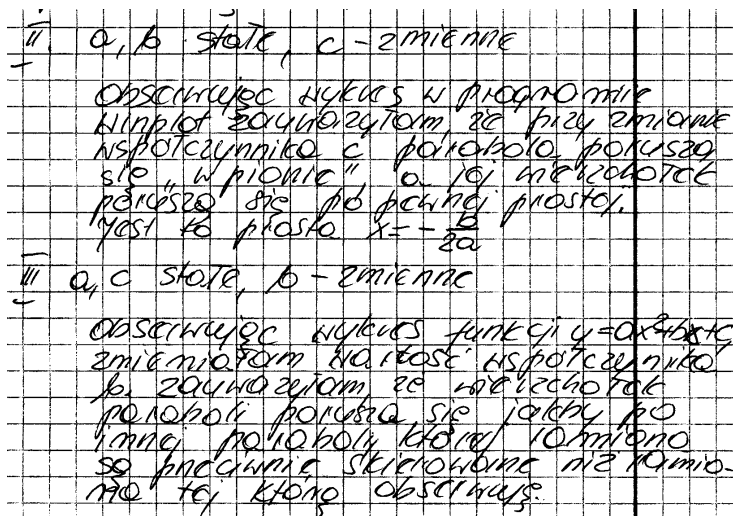 II. a, b stałe, c - zmienne
Obserwując wykres w programie
winplot zauważyłam, że przy zmianie
współczynnika c parabola porusza
się "w pionie" a jej wierzchołek
porusza się po pewnej prostej.
Jest to prosta x = - b/2a
III a, c stałe, b - zmienne
Obserwując wykres funkcji y=ax²+bx+c
zmieniałam wartość współczynnika
b. zauważyłam że wierzchołek
paraboli porusza się jakby po
innej paraboli której ramiona
są przeciwnie skierowane niż ramio-
na tej którą obserwuję.